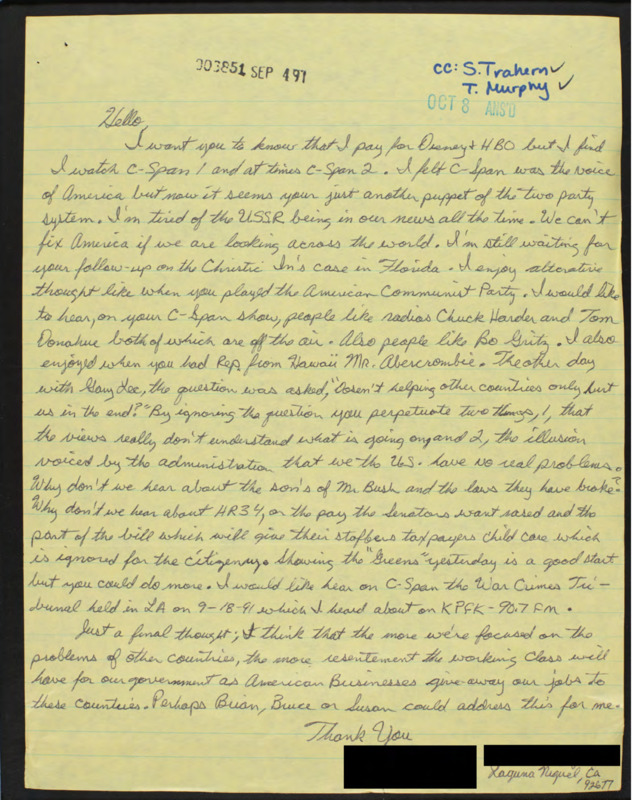 003851 SEP 4 91
cc: S. Trahern ✓
T. Murphy ✓
OCT 8 ANS'D
Hello,
I want you to know that I pay for Disney & HBO but I find
I watch C-Span 1 and at times C-Span 2. I felt C-Span was the voice
of America but now it seems your just another puppet of the two party
system. I'm tired of the USSR being in our news all the time. We can't
fix America if we are looking across the world. I'm still waiting for
your follow-up on the Christic In's case in Florida. I enjoy alterative
thought like when you played the American Communist Party. I would like
to hear, on your C-Span show, people like radios Chuck Harder and Tom
Donahue both of which are off the air. Also people like Bo Gritz. I also
enjoyed when you had Rep. from Hawaii Mr. Abercrombie. The other day
with Gary Lee, the question was asked, "Doesn't helping other countries only hurt
us in the end?" By ignoring the question you perpetuate two things, 1, that
the views really don't understand what is going on, and 2, the illusion
voiced by the administration that we the U.S. have no real problems.
Why don't we hear about the son's of Mr Bush and the laws they have broke?
Why don't we hear about HR34, or the pay the Senators want rased and the
part of the bill which will give their staffers taxpayers child care which
is ignored for the citizenry. Showing the "Greens" yesterday is a good start
but you could do more. I would like hear on C-Span the War Crimes Tri-
bunal held in LA on 9-18-91 which I heard about on KPFK-90.7 FM.
Just a final thought; I think that the more we're focused on the
problems of other countries, the more resentement the working class will
have for our government as American Businesses give away our jobs to
these countries. Perhaps Brian, Bruce or Susan could address this for me.
Thank You
Laguna Niguel, CA
92677